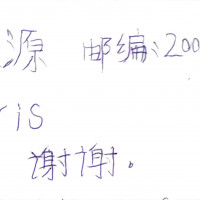 源 邮编:200
is
谢谢.